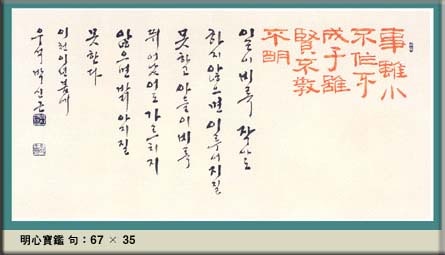 事雖小
不作不
成子雖
賢不敎
不明
일이 비록 작아도
하지 않으면 이루어지질
못하고 아들이 비록
뛰어났어도 가르치지
않으면 밝아지질
못한다
이천이년봄에
우석 박신근
明心寶鑑 句 : 67 × 35